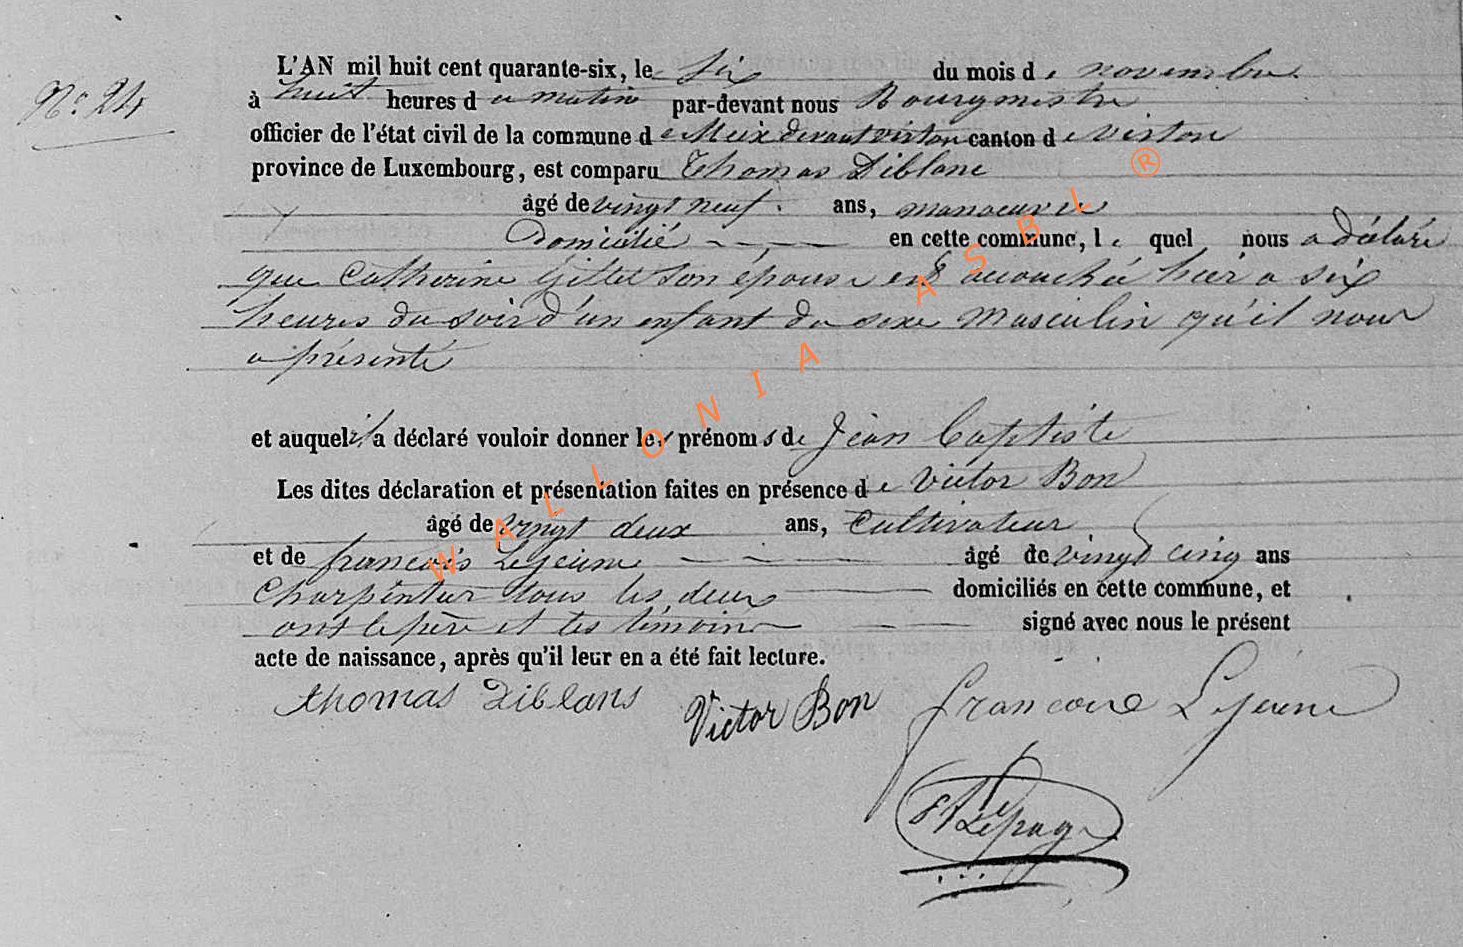 N° 24
L'AN mil huit cent quarante-six, le six du mois de novembre
à huit heures du matin par-devant nous Bourgmestre
officier de l'état civil de la commune de Meix devant virton canton de virton
province de Luxembourg, est comparu Thomas Diblanc
âgé de vingt neuf ans, manoeuvre
Domicilié en cette commune, le quel nous a déclaré
que Catherine Gillet son épouse est accouchée hier a six
heures du soir d'un enfant du sexe Masculin qu'il nous
a présenté
et auquel il a déclaré vouloir donner les prénoms de Jean Baptiste
Les dites déclaration et présentation faites en présence de Victor Bon
âgé de vingt deux ans, Cultivateur
et de francois Lejeune âgé de vingt cinq ans
Charpentier tous les deux domiciliés en cette commune, et
ont le père et les témoins signé avec nous le présent
acte de naissance, après qu'il leur en a été fait lecture.
thomas Diblans Victor Bon francois Lejeune
Lepage
WALLONIA ASBL ®